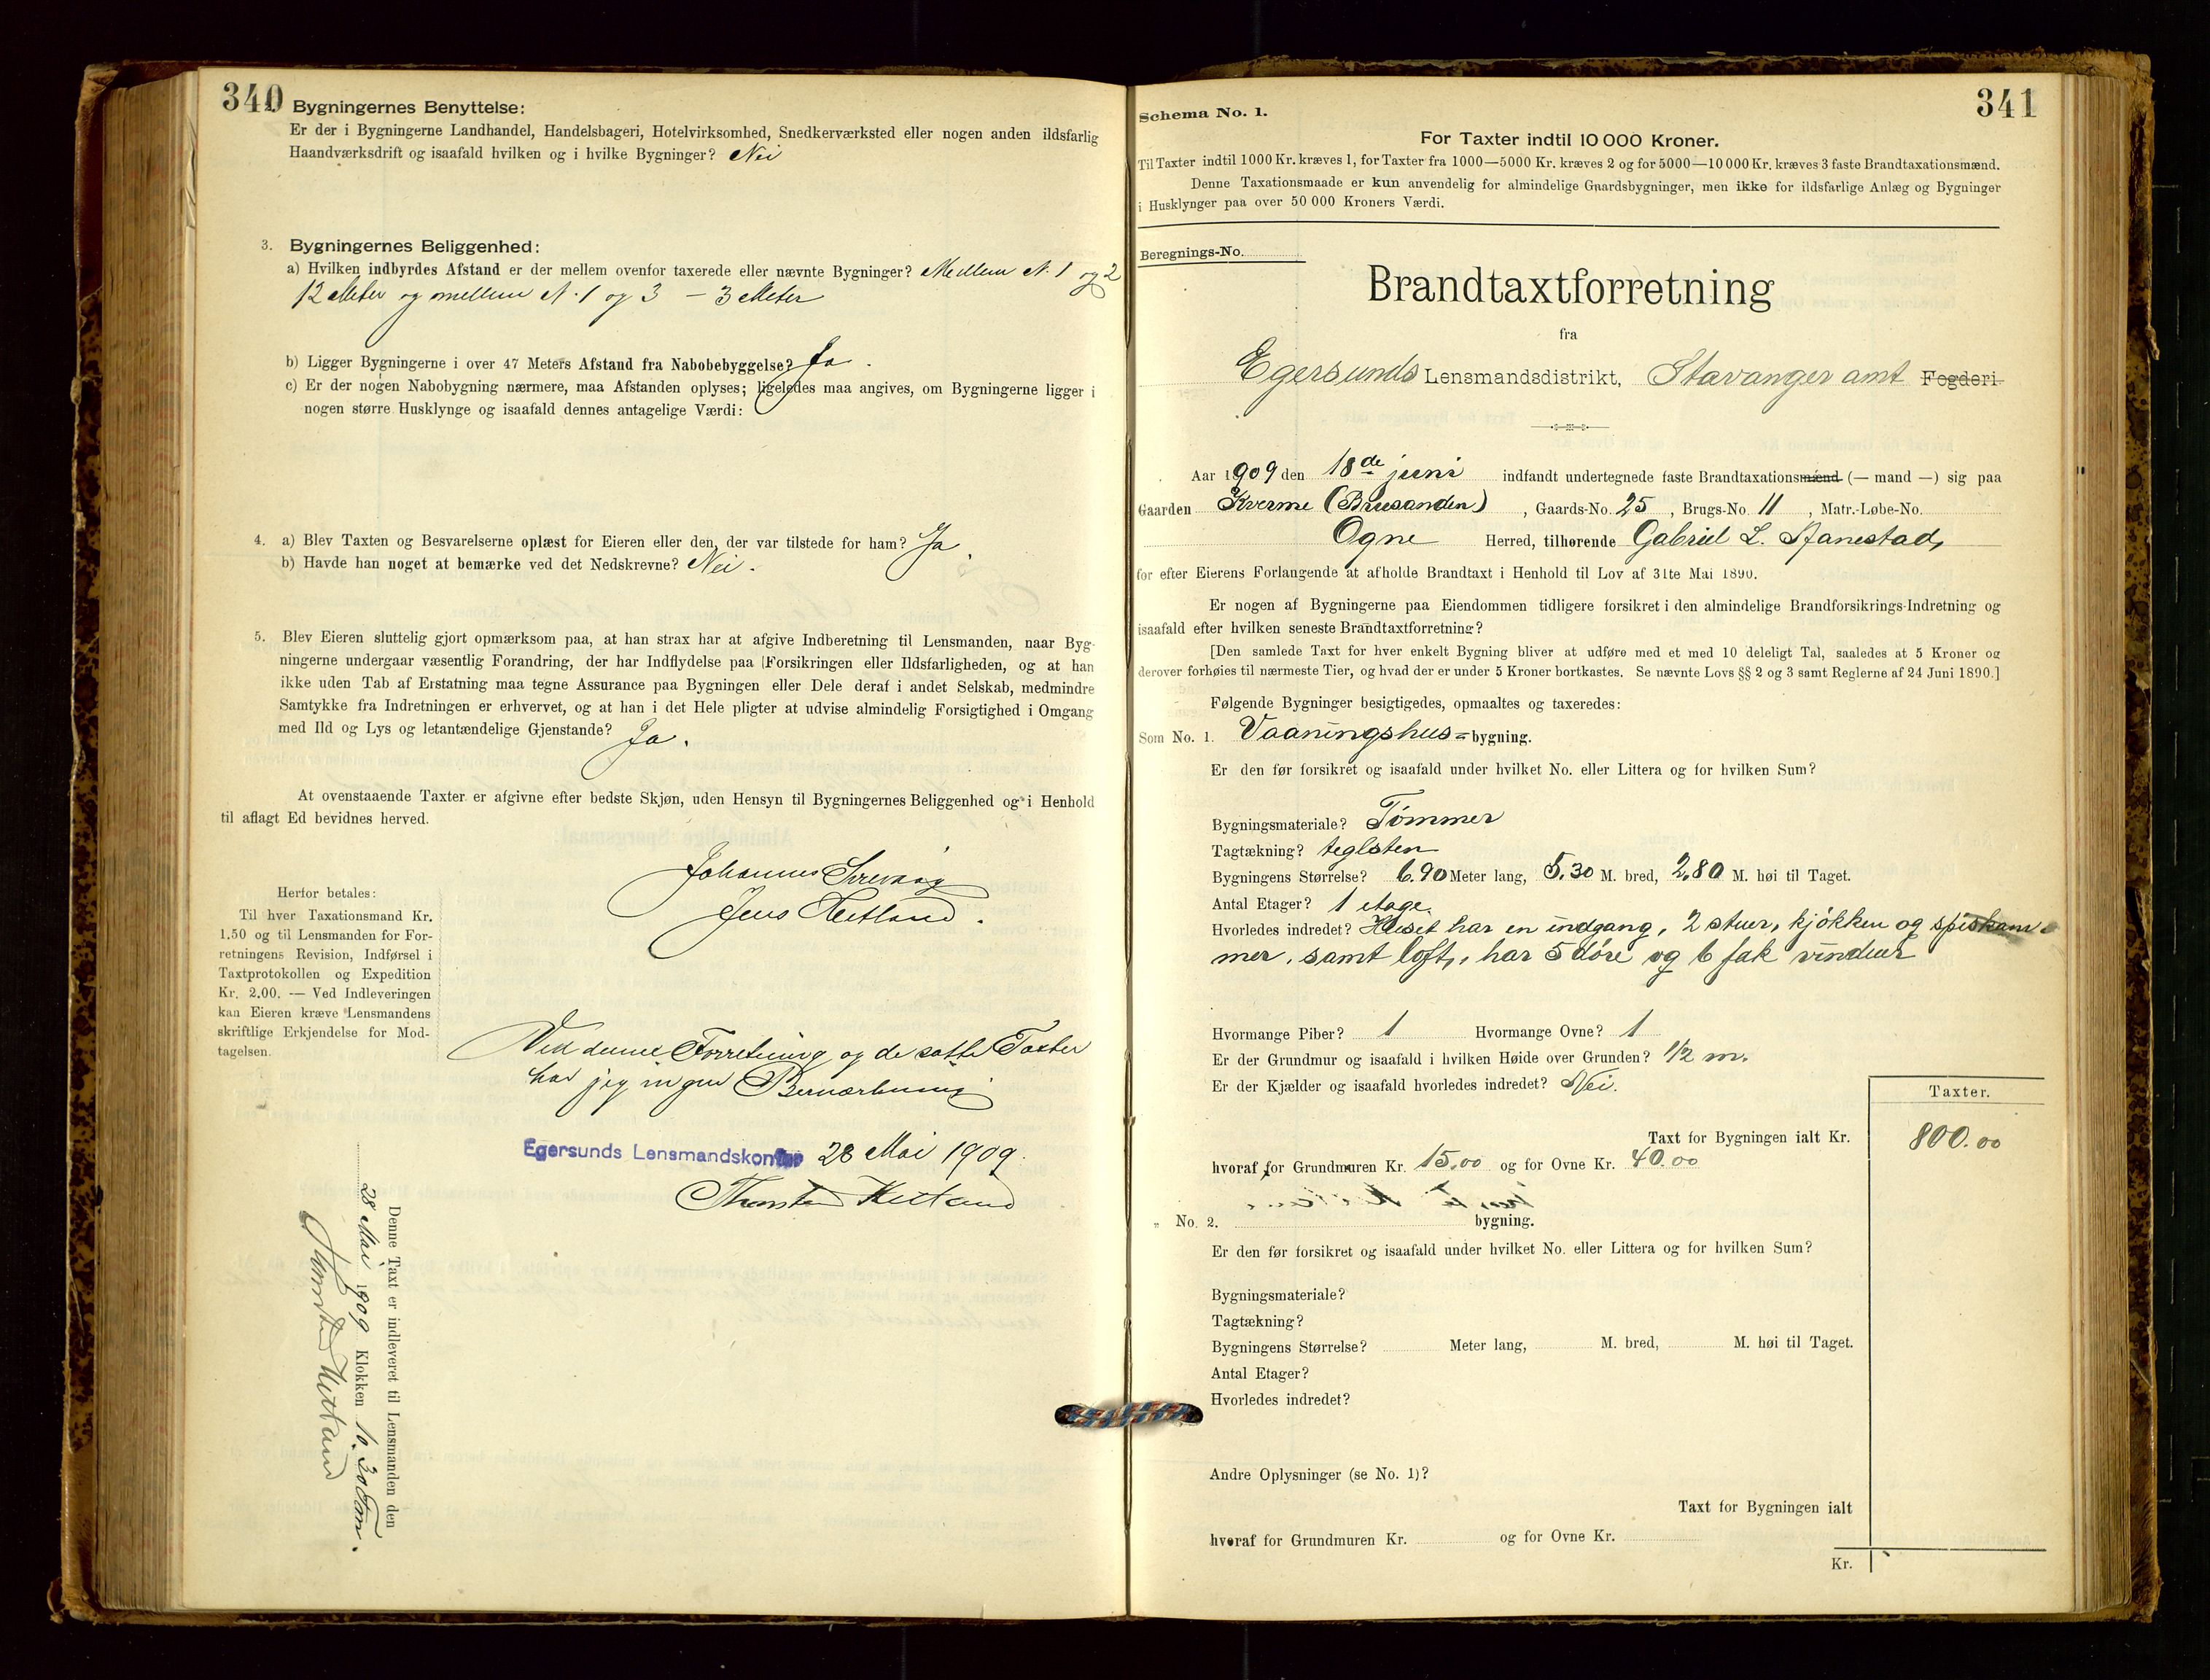 340
Bygningernes Benyttelse:
Er der i Bygningerne Landhandel, Handelsbageri, Hotelvirksomhed, Snedkerværksted eller nogen anden ildsfarlig
Haandværksdrift og isaafald hvilken og i hvilke Bygninger? Nei
3. Bygningernes Beliggenhed:
a) Hvilken indbyrdes Afstand er der mellem ovenfor taxerede eller nævnte Bygninger? Mellem N. 1 og 2
12 Meter og mellem N. 1 og 3 – 3 Meter
b) Ligger Bygningerne i over 47 Meters Afstand fra Nabobebyggelse? Ja.
c) Er der nogen Nabobygning nærmere, maa Afstanden oplyses; ligeledes maa angives, om Bygningerne ligger i
nogen større Husklynge og isaafald dennes antagelige Værdi:
4. a) Blev Taxten og Besvarelserne oplæst for Eieren eller den, der var tilstede for ham? Ja.
b) Havde han noget at bemærke ved det Nedskrevne? Nei.
5. Blev Eieren sluttelig gjort opmærksom paa, at han strax har at afgive Indberetning til Lensmanden, naar Byg-
ningerne undergaar væsentlig Forandring, der har Indflydelse paa Forsikringen eller Ildsfarligheden, og at han
ikke uden Tab af Erstatning maa tegne Assurance paa Bygningen eller Dele deraf i andet Selskab, medmindre
Samtykke fra Indretningen er erhvervet, og at han i det Hele pligter at udvise almindelig Forsigtighed i Omgang
med Ild og Lys og letantændelige Gjenstande? Ja.
At ovenstaaende Taxter er afgivne efter bedste Skjøn, uden Hensyn til Bygningernes Beliggenhed og i Henhold
til aflagt Ed bevidnes herved.
Johannes Sirevaag
Jens Hetland.
Herfor betales:
Til hver Taxationsmand Kr.
1.50 og til Lensmanden for For-
retningens Revision, Indførsel i
Taxtprotokollen og Expedition
Kr. 2.00. — Ved Indleveringen
kan Eieren kræve Lensmandens
skriftlige Erkjendelse for Mod-
tagelsen.
Ved denne Forretning og de satte Taxter
har jeg ingen Bemærkning
Egersunds Lensmandskontor 28 Mai 1909.
Thorsten Hetland
Denne Taxt er indleveret til Lensmanden den
28 Mai 1909 Klokken 10.30 Fm.
Thorsten Hetland
341
Schema No. 1.
For Taxter indtil 10 000 Kroner.
Til Taxter indtil 1000 Kr. kræves 1, for Taxter fra 1000—5000 Kr. kræves 2 og for 5000—10 000 Kr. kræves 3 faste Brandtaxationsmænd.
Denne Taxationsmaade er kun anvendelig for almindelige Gaardsbygninger, men ikke for ildsfarlige Anlæg og Bygninger
i Husklynger paa over 50 000 Kroners Værdi.
Beregnings-No.
Brandtaxtforretning
fra
Egersunds Lensmandsdistrikt, Stavanger amt Fogderi
Aar 1909 den 18de juni indfandt undertegnede faste Brandtaxationsmænd (— mand —) sig paa
Gaarden Kverme (Brusanden), Gaards-No. 25, Brugs-No. 11, Matr.-Løbe-No.
Ogne Herred, tilhørende Gabriel L. Stanestad,
for efter Eierens Forlangende at afholde Brandtaxt i Henhold til Lov af 31te Mai 1890.
Er nogen af Bygningerne paa Eiendommen tidligere forsikret i den almindelige Brandforsikrings-Indretning og
isaafald efter hvilken seneste Brandtaxtforretning?
[Den samlede Taxt for hver enkelt Bygning bliver at udføre med et med 10 deleligt Tal, saaledes at 5 Kroner og
derover forhøies til nærmeste Tier, og hvad der er under 5 Kroner bortkastes. Se nævnte Lovs §§ 2 og 3 samt Reglerne af 24 Juni 1890.]
Følgende Bygninger besigtigedes, opmaaltes og taxeredes:
Som No. 1. Vaaningshus=bygning.
Er den før forsikret og isaafald under hvilket No. eller Littera og for hvilken Sum?
Bygningsmateriale? Tømmer
Tagtækning? teglsten
Bygningens Størrelse? 6.90 Meter lang, 5.30 M. bred, 2,80 M. høi til Taget.
Antal Etager? 1 etage
Hvorledes indredet? Huset har en indgang, 2 stuer, kjøkken og spiskam-
mer, samt loft, har 5 døre og 6 fak vinduer
Hvormange Piber? 1 Hvormange Ovne? 1
Er der Grundmur og isaafald i hvilken Høide over Grunden? 1/2 m.
Er der Kjælder og isaafald hvorledes indredet? Nei.
Taxter.
Taxt for Bygningen ialt Kr. 800.00
hvoraf for Grundmuren Kr. 15,00 og for Ovne Kr. 40.00
„ No. 2. bygning.
Er den før forsikret og isaafald under hvilket No. eller Littera og for hvilken Sum?
Bygningsmateriale?
Tagtækning?
Bygningens Størrelse? Meter lang, M. bred, M. høi til Taget.
Antal Etager?
Hvorledes indredet?
Andre Oplysninger (se No. 1)?
Taxt for Bygningen ialt
hvoraf for Grundmuren Kr. og for Ovne Kr.
Kr.